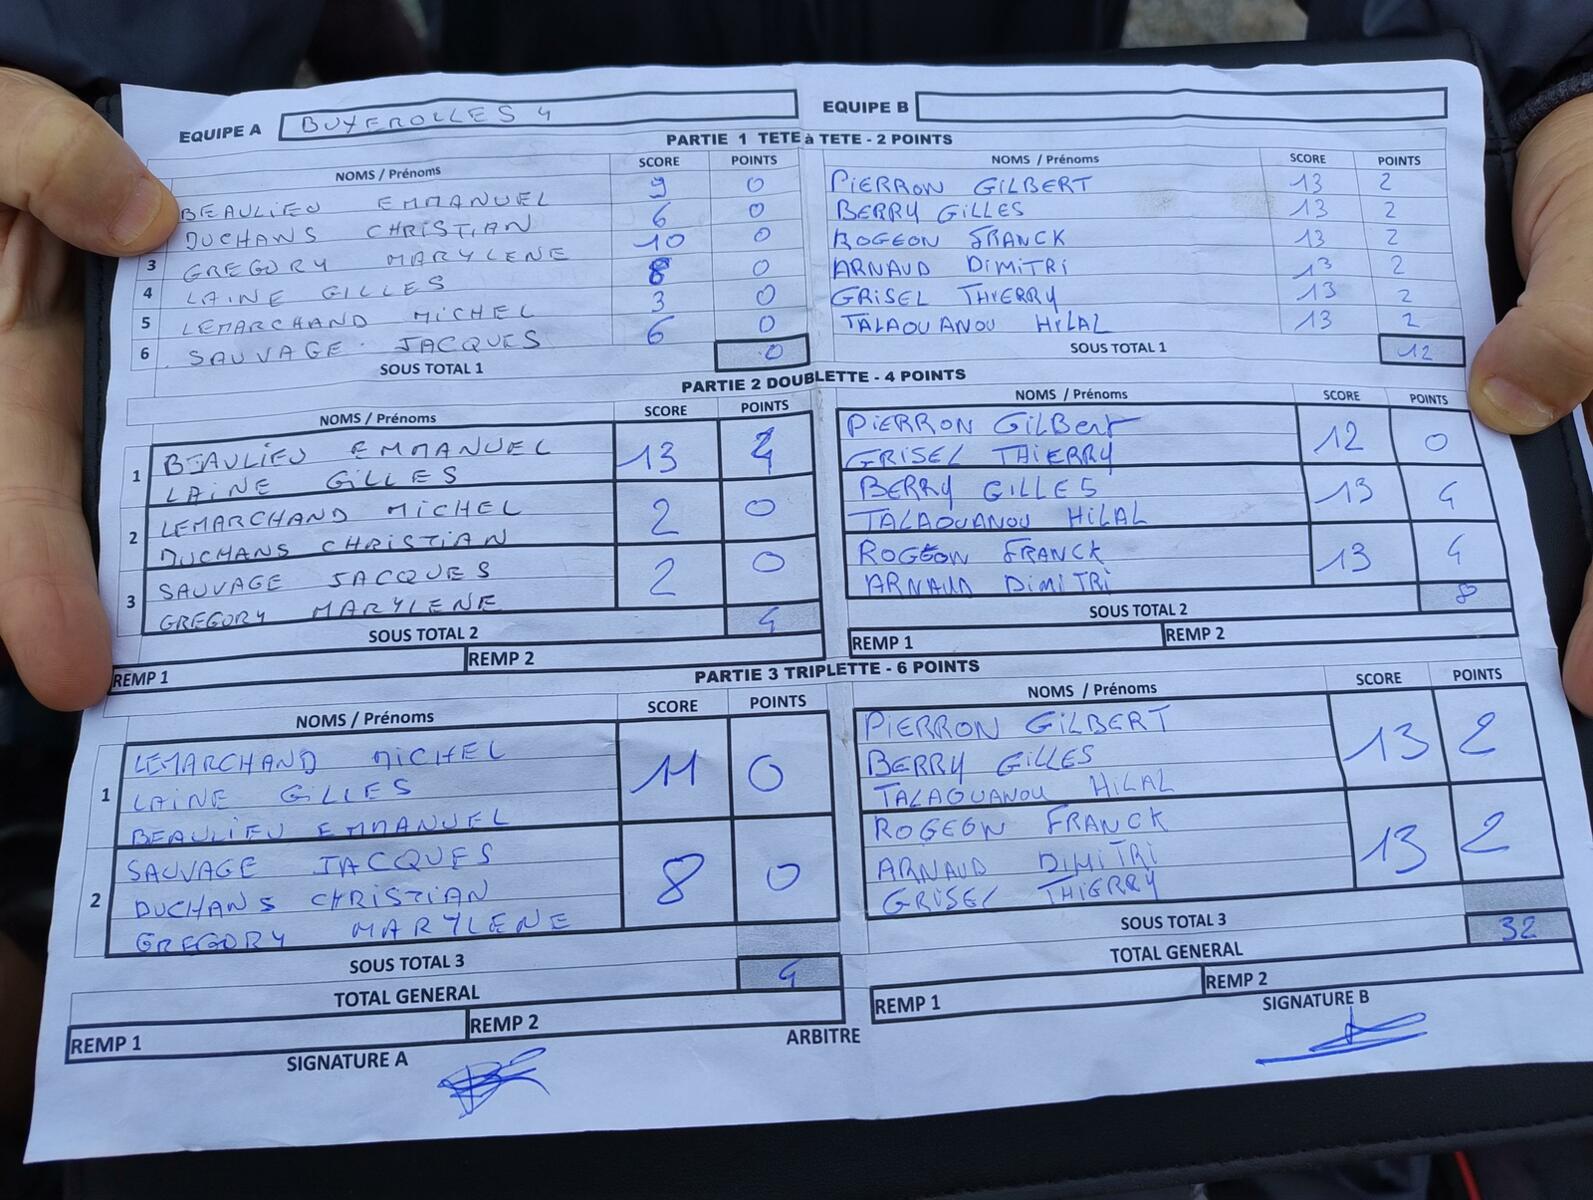 EQUIPE A BUXEROLLES 4
EQUIPE B
PARTIE 1 TETE à TETE - 2 POINTS
NOMS / Prénoms SCORE POINTS
BEAULIEU EMMANUEL 9 0
DUCHANS CHRISTIAN 6 0
3 GREGORY MARYLENE 10 0
4 LAINE GILLES 8 0
5 LEMARCHAND MICHEL 3 0
6 SAUVAGE JACQUES 6 0
SOUS TOTAL 1 0
NOMS / Prénoms SCORE POINTS
PIERRON GILBERT 13 2
BERRY GILLES 13 2
ROGEON FRANCK 13 2
ARNAUD DIMITRI 13 2
GRISEL THIERRY 13 2
TALAOUANOU HILAL 13 2
SOUS TOTAL 1 12
PARTIE 2 DOUBLETTE - 4 POINTS
NOMS / Prénoms SCORE POINTS
1 BEAULIEU EMMANUEL 13 4
LAINE GILLES
2 LEMARCHAND MICHEL 2 0
DUCHANS CHRISTIAN
3 SAUVAGE JACQUES 2 0
GREGORY MARYLENE
SOUS TOTAL 2 4
REMP 1 REMP 2
NOMS / Prénoms SCORE POINTS
PIERRON GILBERT 12 0
GRISEL THIERRY
BERRY GILLES 13 4
TALAOUANOU HILAL
ROGEON FRANCK 13 4
ARNAUD DIMITRI
SOUS TOTAL 2 8
REMP 1 REMP 2
PARTIE 3 TRIPLETTE - 6 POINTS
NOMS / Prénoms SCORE POINTS
1 LEMARCHAND MICHEL 11 0
LAINE GILLES
BEAULIEU EMMANUEL
2 SAUVAGE JACQUES 8 0
DUCHANS CHRISTIAN
GREGORY MARYLENE
SOUS TOTAL 3
TOTAL GENERAL 4
REMP 1 REMP 2
SIGNATURE A
NOMS / Prénoms SCORE POINTS
PIERRON GILBERT 13 2
BERRY GILLES
TALAOUANOU HILAL
ROGEON FRANCK 13 2
ARNAUD DIMITRI
GRISEL THIERRY
SOUS TOTAL 3
TOTAL GENERAL 32
REMP 1 REMP 2
SIGNATURE B
ARBITRE